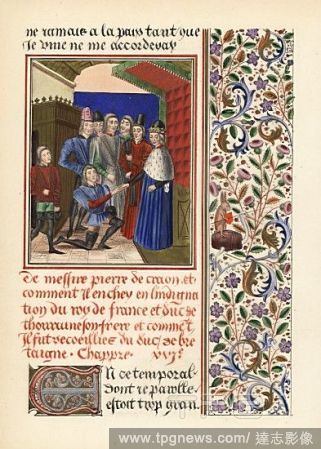 ne ramaus a la pays tant que
Je vine ne me accorderay
De messire pierre de craon et
comment il enchey en lindigna
tion du roy de france et duc de
thourainne son frere et commēt
il fut recoeillie du duc de bre
taigne . Chappre . xxi .
En ce temporal
dont je parolle
estoit trop gran
www.tpgnews.com / 達志影像